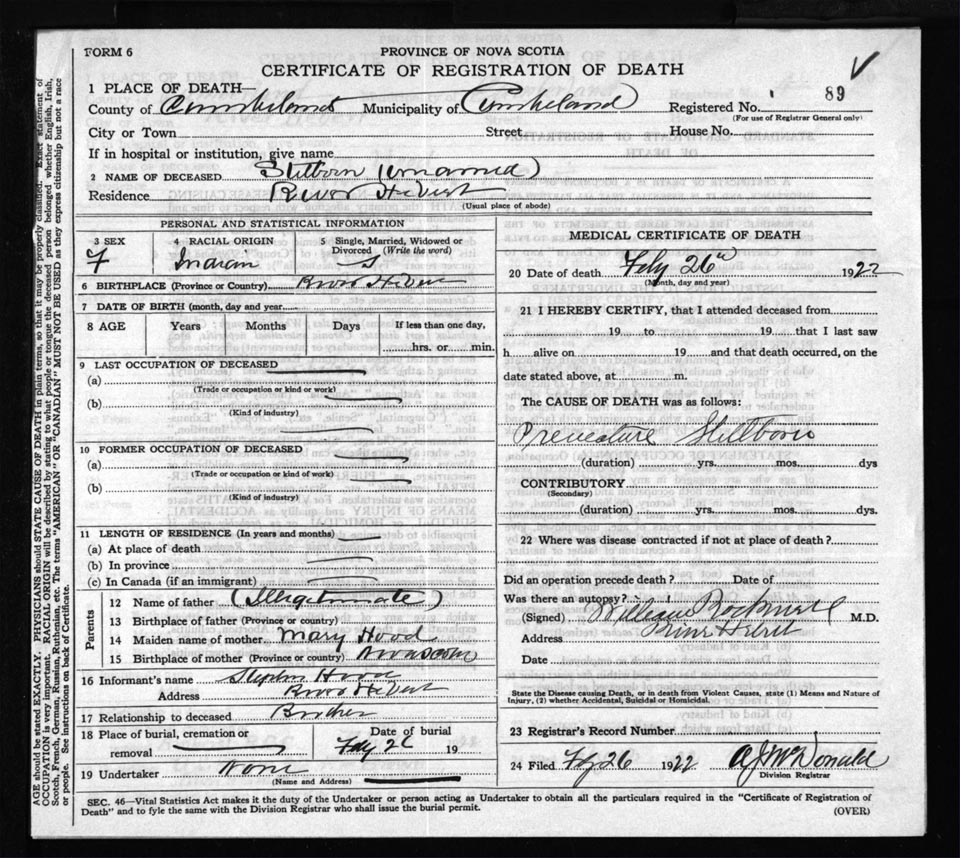 FORM 6
PROVINCE OF NOVA SCOTIA
CERTIFICATE OF REGISTRATION OF DEATH
1 PLACE OF DEATH—
County of Cumberland Municipality of Cumberland Registered No. 89
(For use of Registrar General only)
City or Town Street House No.
If in hospital or institution, give name
2 NAME OF DECEASED Stillborn (unnamed)
Residence River Hebert
(Usual place of abode)
PERSONAL AND STATISTICAL INFORMATION
3 SEX 4 RACIAL ORIGIN 5 Single, Married, Widowed or Divorced (Write the word)
F Indian S
6 BIRTHPLACE (Province or Country) River Hebert
7 DATE OF BIRTH (month, day and year)
8 AGE Years Months Days If less than one day,
hrs. or min.
9 LAST OCCUPATION OF DECEASED
(a)
(Trade or occupation or kind or work)
(b)
(Kind of industry)
10 FORMER OCCUPATION OF DECEASED
(a)
(Trade or occupation or kind of work)
(b)
(Kind of industry)
11 LENGTH OF RESIDENCE (In years and months)
(a) At place of death
(b) In province
(c) In Canada (if an immigrant)
Parents
12 Name of father (Illegitimate)
13 Birthplace of father (Province or country)
14 Maiden name of mother Mary Hood
15 Birthplace of mother (Province or country) Nova Scotia
16 Informant's name Stephen Hood
Address River Hebert
17 Relationship to deceased Brother
18 Place of burial, cremation or Date of burial
removal Feby 26 19
19 Undertaker None
(Name and Address)
MEDICAL CERTIFICATE OF DEATH
20 Date of death Feby 26th 1922
(Month, day and year)
21 I HEREBY CERTIFY, that I attended deceased from
19 to 19 that I last saw
h alive on 19 and that death occurred, on the
date stated above, at m.
The CAUSE OF DEATH was as follows:
Premature Stillborn
(duration) yrs. mos. dys
CONTRIBUTORY
(Secondary)
(duration) yrs. mos. dys.
22 Where was disease contracted if not at place of death?
Did an operation precede death? Date of
Was there an autopsy?
(Signed) William Rockwell M.D.
Address River Hebert
Date
State the Disease causing Death, or in death from Violent Causes, state (1) Means and Nature of
Injury, (2) whether Accidental, Suicidal or Homicidal.
23 Registrar's Record Number
24 Filed Feby 26 1922 McDonald
Division Registrar
SEC. 46—Vital Statistics Act makes it the duty of the Undertaker or person acting as Undertaker to obtain all the particulars required in the "Certificate of Registration of
Death" and to fyle the same with the Division Registrar who shall issue the burial permit. (OVER)
AGE should be stated EXACTLY. PHYSICIANS should STATE CAUSE OF DEATH in plain terms, so that it may be properly classified. Exact statement of
OCCUPATION is very important. RACIAL ORIGIN will be described by stating to what people or tongue the deceased person belonged whether English, Irish,
Scotch, French, German, Russian, Ruthenian, etc. The terms "AMERICAN" OR "CANADIAN" MUST NOT BE USED as they express citizenship but not a race
or people. See instructions on back of Certificate.